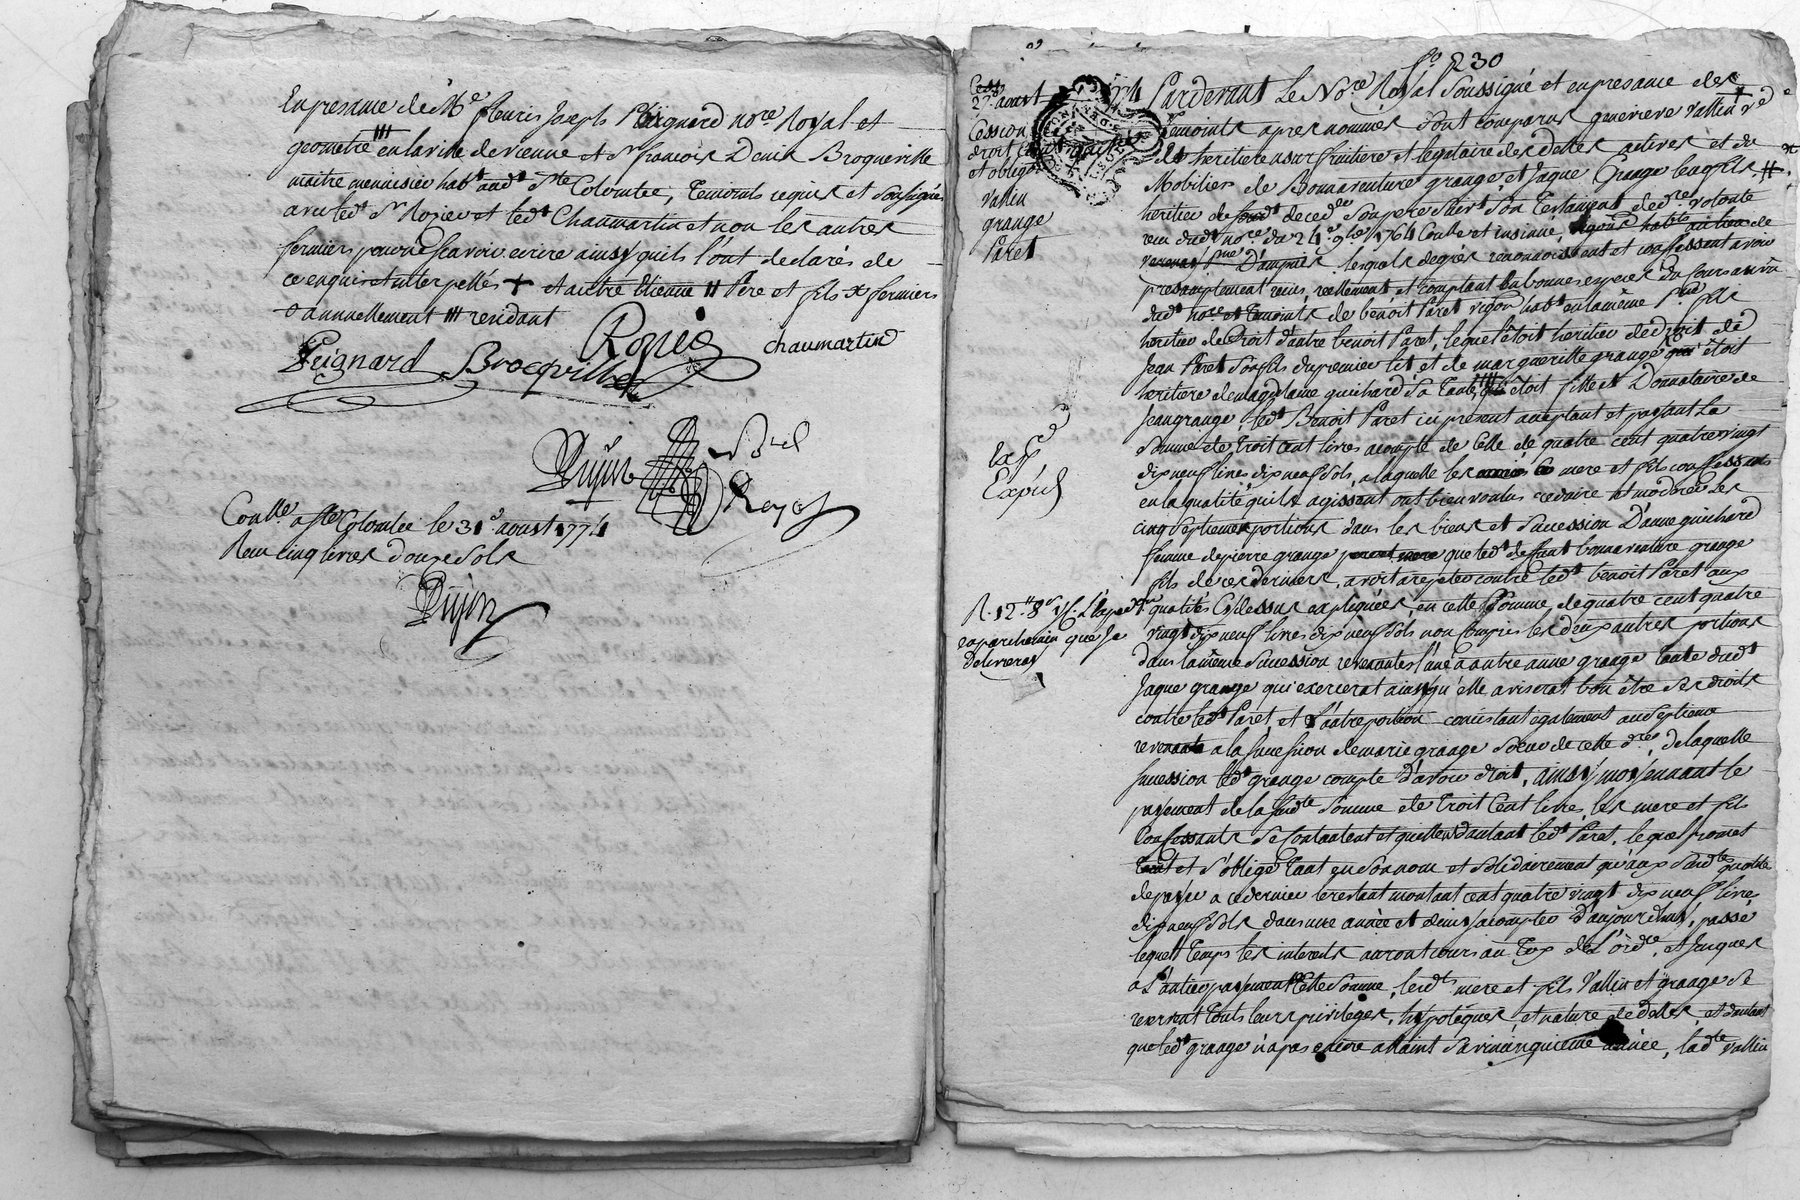 En presance de Me fleuris Joseph Peignard nore Royal et
geometre en la ville de vienne et Sr francois Denis Broqueville
maitre menuisier habt aud Ste Colombe, Temoins requis et soussignés
avec ledt Sr Rozier et ledt Chaumartin et non les autres
fermiers pour ne scavoir ecrire ainsy qu'ils l'ont declarés de
ce enquis et interpellés + et autre Etienne # Pere et fils x fermiers
o annuellement ||| rendant
Peignard Brocqville Rozier chaumartin
Dujon
Conllé a Ste Colombe le 31e aoust 1774
Recu cinq livres douze sols
Dujon
fo 230
27 aoust 1774
Cession
droit
et oblig
Vallin
grange
Paret
Expé
Expié
en parchemin que j'ai
delivrée
Pardevant Le Nore Royal Soussigné et en presance des
Temoins apres nommés sont comparus genevieve Vallin ve
et heritiere usurfruitiere et legataire des dettes actives et du
Mobilier de Bonnaventure grange, et Jaque Grange leur fils
heritier de sondt decedé son pere suivt son Testament de dre volonte
recu dudt nore du 24e 9bre 1764 Conllé et insinué,
lesquels de grés reconnoissent et confessent avoir
presantement recus, reellement et comptant en bonnes especes du cours au vu
dudt nore et temoins de benoit Paret vigon habt en la même
heritier de Droit d'autre benoit Paret, lequel étoit heritier de droit de
Jean Paret son fils du premier lit et de marguerite grange qui étoit
heritiere de magdelaine guichard sa Tante qui étoit fille et Donnataire de
Jean grange, ledt Benoit Paret ici present acceptant et payant La
Somme de Troit cent livres acompte de Celle de quatre cent quatre vingt
dix neuf livres dix neuf sols, a laquelle les mere et fils confessants
en la qualité qu'ils agissent ont bien voulus reduire et moderer les
cinq septiemes portions dans les biens et succession D'anne guichard
femme de pierre grange que ledt deffunt bonnaventure grange
fils de ces derniers, avoit a repeter contre ledt benoit Paret aux
qualités Cy dessus expliquées, en cette Somme de quatre cent quatre
vingt dix neuf livres dix neuf sols non compris les deux autres portions
dans la même Succession revenantes l'une a autre anne grange Tante dudt
Jaque grange qui exercerat ainsy qu'elle aviserat bon être ses droits
contre ledt Paret, et L'autre portion consistant egalement au septieme
revenante a la succession de marie grange soeur de cette dre, de laquelle
succession ledt grange compte d'avoir droit, ainsy moyennant le
payement de la susdte Somme de Troit Cent livres, les mere et fils
Confessants se contentent et quittent d'autant ledt Paret, lequel promet
et s'oblige tant en son nom et solidairement qu'aux susdte qualité
de payer a ce dernier le restant montant cent quatre vingt dix neuf livres
dix neuf sols dans une année et demy a compter d'aujourd'huy, passé
lequel Temps les interets auront cours au Tox de L'ordce, et Jusques
a L'antier payement de Cette Somme, lesdts mere et fils Vallin et grange se
reservent Touts leurs privileges, hypoteques, et nature de dettes, et d'autant
que ledt grange n'a pas encore attaint sa vincinquieme année, ladte Vallin